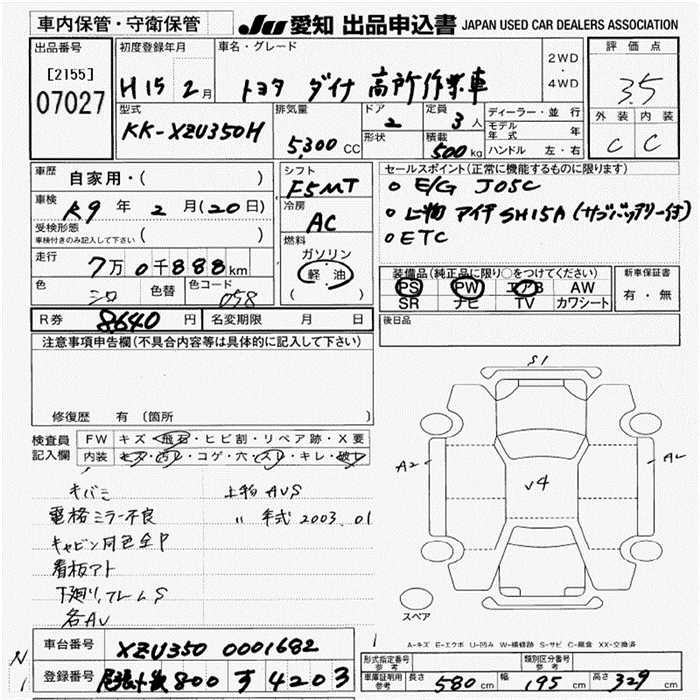 車内保管・守衛保管
JU 愛知 出品申込書 JAPAN USED CAR DEALERS ASSOCIATION
出品番号
[2155]
07027
初度登録年月
H15 2月
車名・グレード
トヨタ ダイナ 高所作業車
2WD
・
4WD
評価点
3.5
外装 内装
C C
型式
KK-XZU350H
排気量
5,300 CC
ドア
2
形状
定員
3人
積載
500 kg
ディーラー・並行
モデル年式 年
ハンドル 左・右
車歴
自家用・( )
車検
R9年 2月(20日)
受検形態
車検付きのみ記入して下さい ( )
走行
7万 0千888km
色
シロ
色替
色コード
058
シフト
F5MT
冷房
AC
燃料
ガソリン
軽油
( )
セールスポイント(正常に機能するものに限ります)
○ E/G J05C
○ 上物 アイチ SH15A (サブバッテリー付)
○ ETC
装備品(純正品に限り○をつけてください)
PS PW エアB AW
SR ナビ TV カワシート
新車保証書
有・無
R券 8,640 円
名変期限 月 日
後日品
注意事項申告欄(不具合内容等は具体的に記入して下さい)
修復歴 有(箇所
検査員
記入欄
FW キズ・飛石・ヒビ割・リペア跡・X要
内装 キズ・汚レ・コゲ・穴・スレ・キレ・破レ
キバミ
電格ミラー不良
キャビン同色全P
看板アト
下廻リ,フレームS
各AU
上物 AUS
〃 年式 2003.01
S1
A2
A2
√4
スペア
A-キズ E-エクボ U-凹み W-補修跡 S-サビ C-腐食 XX-交換済
車台番号 XZU350 0001682
登録番号 尾張小牧 800 す 4203
形式指定番号
参考
類別区分番号
参考
車庫証明用
参考
長さ 580 cm
幅 195 cm
高さ 329 cm